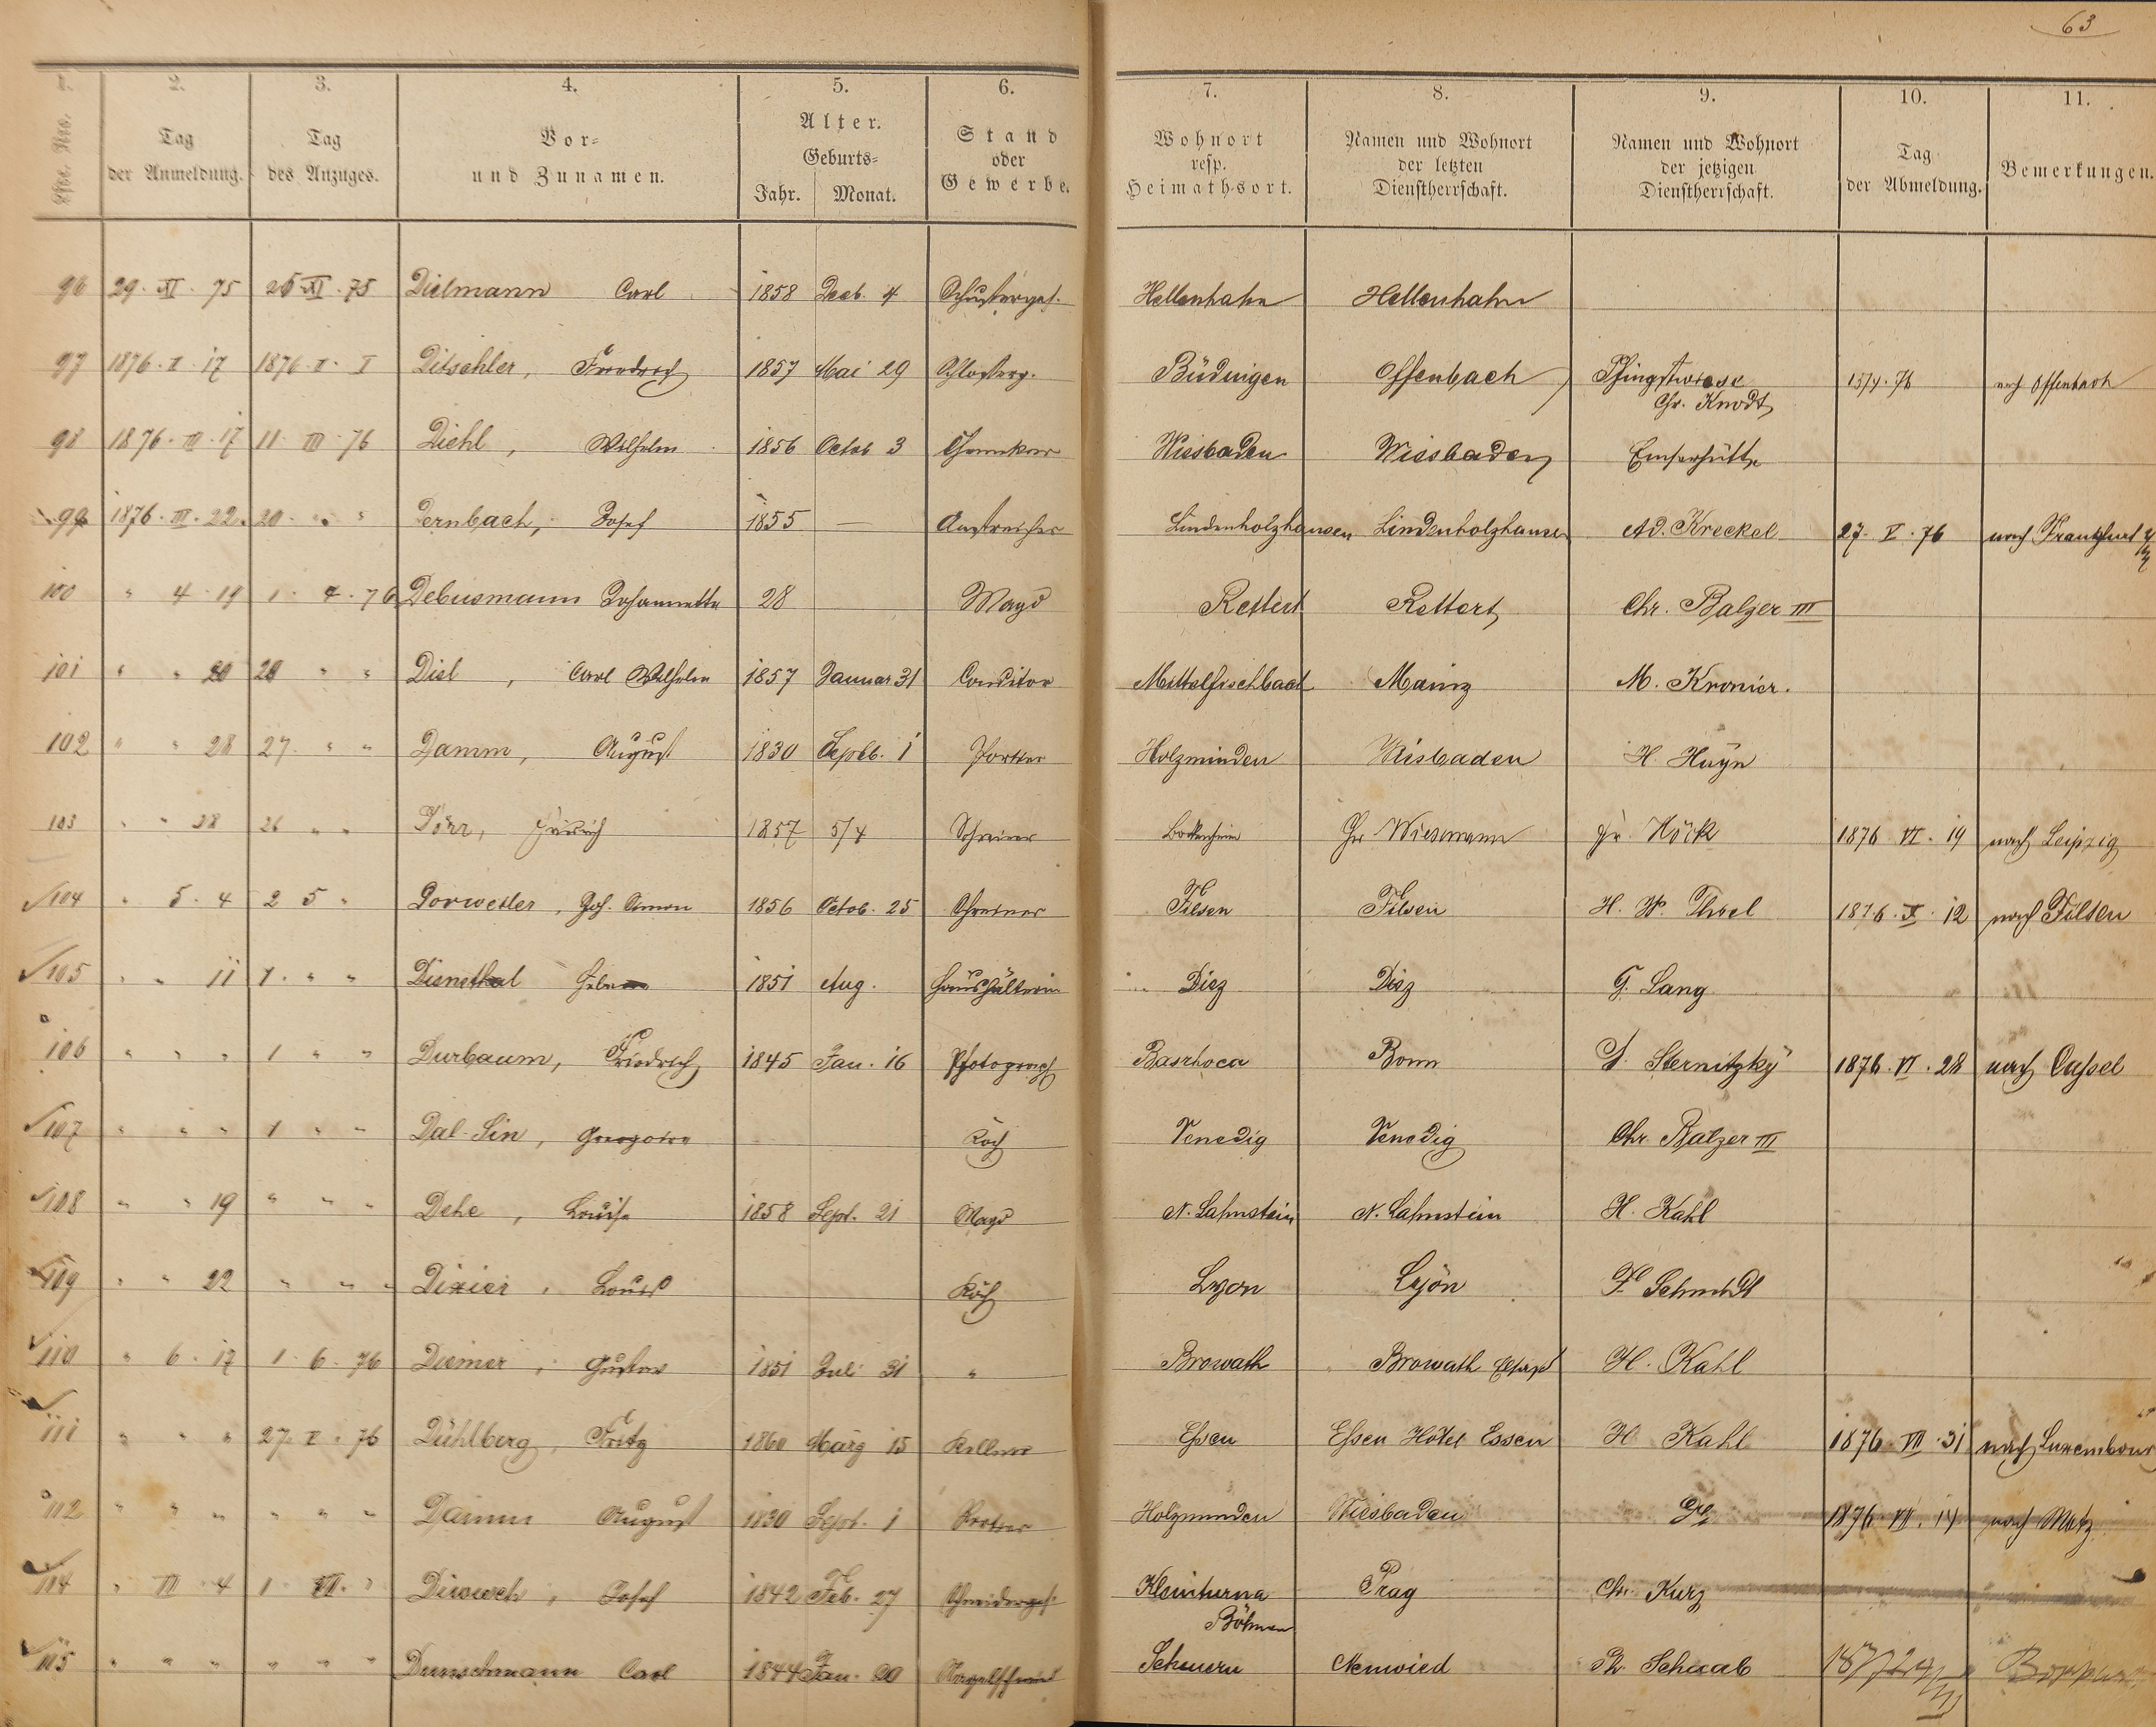 63
1. 2. 3. 4. 5. 6. 7. 8. 9. 10. 11.
Lfde. Nro. Tag der Anmeldung. Tag des Anzuges. Vor- und Zunamen. Alter. Geburts- Jahr. Monat. Stand oder Gewerbe. Wohnort resp. Heimathsort. Namen und Wohnort der letzten Dienstherrschaft. Namen und Wohnort der jetzigen Dienstherrschaft. Tag der Abmeldung. Bemerkungen.
96 29. XI. 75 26 XI. 75 Dielmann Carl 1858 Decb. 4 Schusterges. Hellenhahn Hellenhahn
97 1876. II. 17 1876. II. I Ditschler, Friedrich 1857 Mai 29 Schlosserg. Büdingen Offenbach Pfingstwiese 13/4. 76 nach Offenbach
Chr. Knodt
98 1876. III. 17 11. III. 76 Diehl, Wilhelm 1856 Octob 3 Wiesbaden Wiesbaden Emserhütte
99 1876. III. 22. 20. " " Dernbach, Josef 1855 — Anstreicher Lindenholzhausen Lindenholzhausen Ad. Kreckel 27. V. 76 nach Frankfurt
100 " 4. 19 1. 4. 76 Debusmann Johannette 28 Magd Rettert Rettert Chr. Balzer III
101 " " 20 20 " " Diel, Carl Wilhelm 1857 Januar 31 Conditor Mittelfischbach Mainz M. Kronier.
102 " " 28 27. " " Damm, August 1830 Septb. 1 Portier Holzminden Wisbaden H. Huyn
103 " " 28 26 " " Dörr, Friedrich 1857 5/4 Schreiner Bockenheim Hr Wiesmann Fr. Höck 1876 VI. 19 nach Leipzig
104 " 5. 4 2 5 " Dorweiler, Joh. Simon 1856 Octob. 25 Schreiner Filsen Filsen H. W. Thiel 1876. X. 12 nach Filsen
105 " " 11 1. " " Diensthal Helene 1851 Aug. Haushälterin Diez Diez G. Lang
106 " " " 1 " " Durbaum, Friedrich 1845 Jan. 16 Photograph Basrhoca Bonn S. Sternitzky 1876. VI. 28 nach Cassel
107 " " " 1 " " Dal-Sin, Gregoire Koch Venedig Venedig Chr. Balzer III
108 " " 19 " " " Dehe, Louise 1858 Sept. 21 Magd N. Lahnstein N. Lahnstein H. Kahl
109 " " 22 " " " Dixier, Louis Koch Lyon Lyon F. Schmidt
110 " 6. 17 1. 6. 76 Diemer, Gustav 1851 Juli 31 " Browath Browath H. Kahl
111 " " " 27. V. 76 Dühlberg, Fritz 1860 März 15 Kellner Essen Essen Hôtel Essen H. Kahl 1876. VII. 31 nach Luxembourg
112 " " " " " " Damm August 1830 Sept. 1 Portier Holzminden Wiesbaden 1876. VII. 14 nach Metz
114 " III. 4 1. VII. " Josef 1842 Feb. 27 Schneiderges. Kleinturna Prag Chr. Kurz
Böhmen
115 " " " " " " Dunschmann Carl 1844 Jan. 20 Nagelschmied Scheuern Neuwied Ph. Schaab